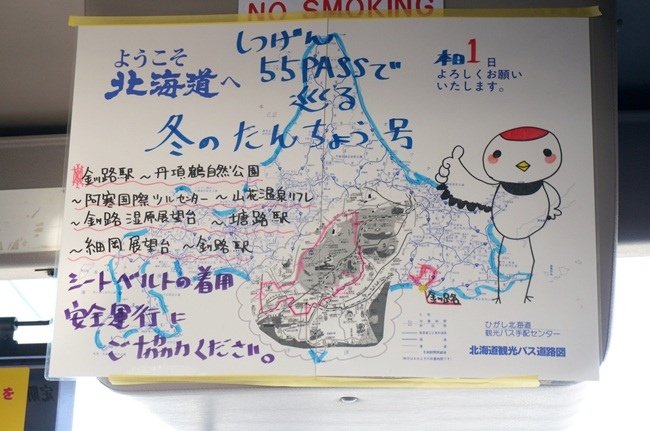 NO SMOKING
ようこそ
北海道へ
しつげん
55PASSで
巡る
冬のたんちょう号
本日1日
よろしくお願い
いたします。
釧路駅～丹頂鶴自然公園
～阿寒国際ツルセンター～山花温泉リフレ
～釧路湿原展望台～塘路駅
～細岡展望台～釧路駅
シートベルトの着用
安全運行に
ご協力ください。
釧路
ひがし北海道
観光バス手配センター
北海道観光バス道路図
を